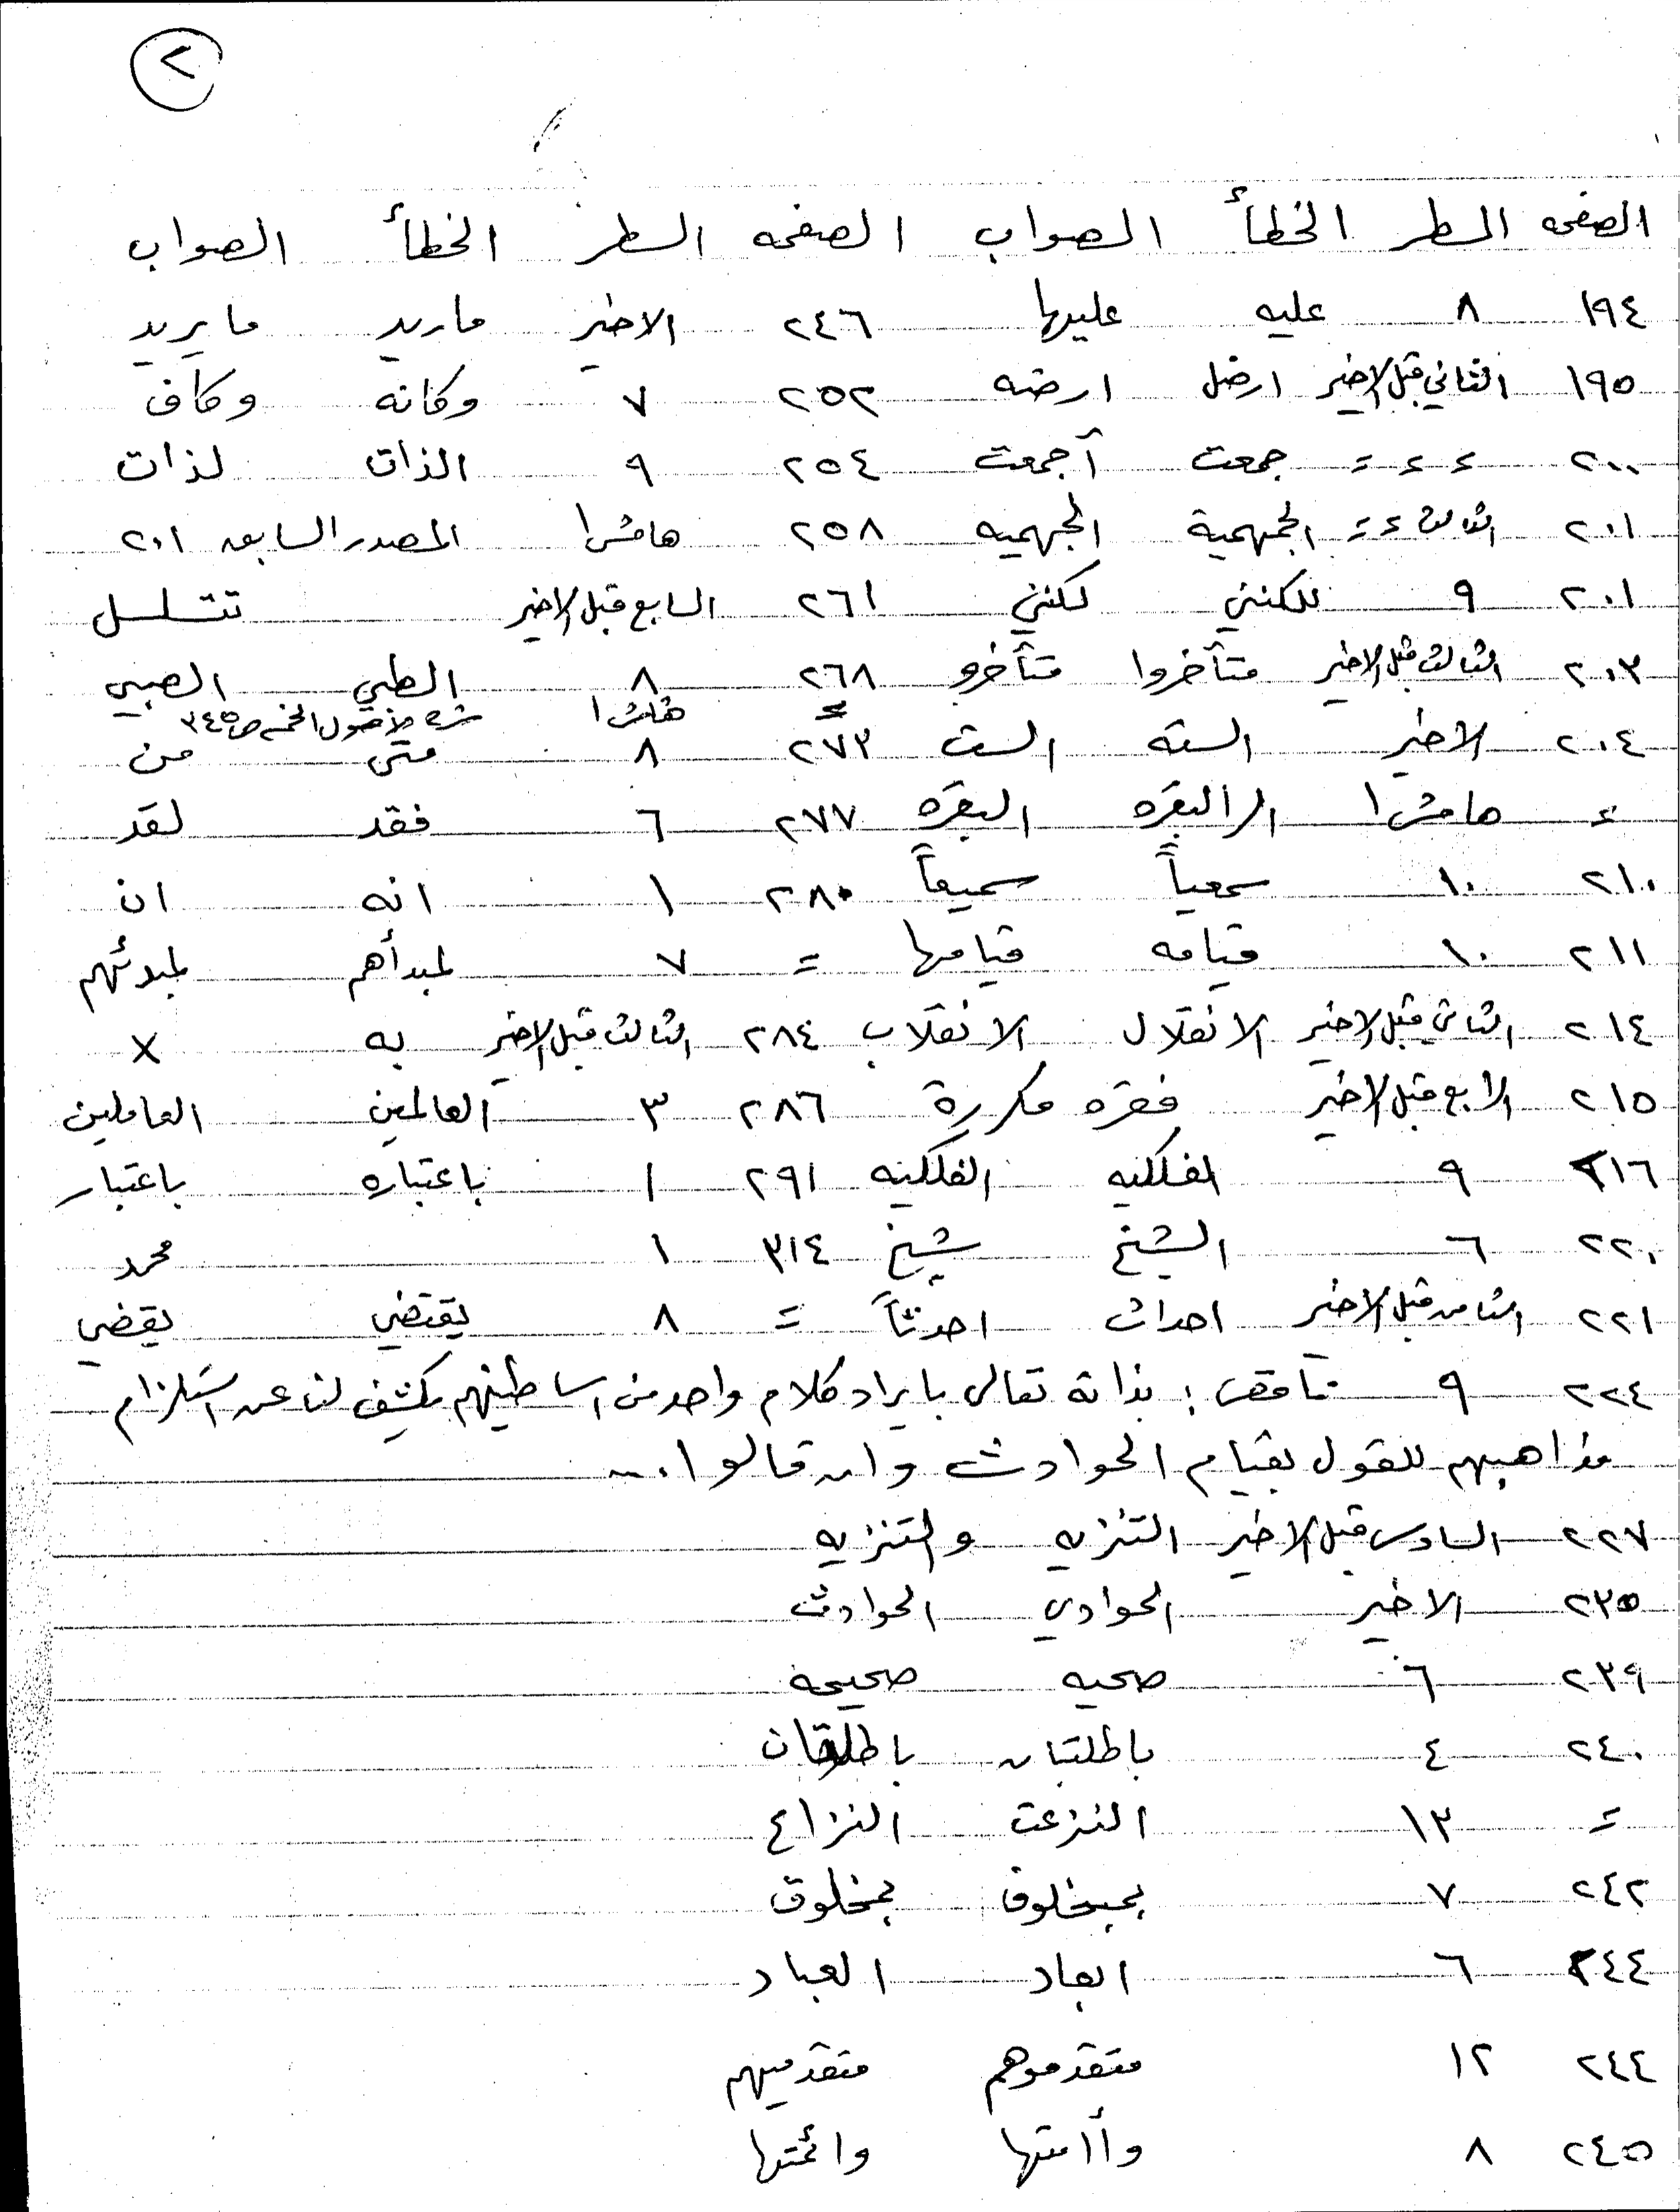 ٢
الصفحه السطر الخطأ الصواب الصفحه السطر الخطأ الصواب
١٩٤ ٨ عليه عليها ٢٤٦ الاخير ماريد مايريد
١٩٥ الثاني قبل الاخير ارضل ارضه ٢٥٢ ٧ وكانه وكاف
٢٠٠ = = = جمعت أجمعت ٢٥٤ ٩ الذات لذات
٢٠١ الثالث = = الجمهمية الجهميه ٢٥٨ هامش١ المصدر السابق ٢٠١
٢٠١ ٩ للكنني لكنني ٢٦١ السابع قبل الاخير تتسلسل
٢٠٣ الثالث قبل الاخير متأخروا متأخرو ٢٦٨ ٨ الطبي الصبي
= هامش١ شرح الأصول الخمسه ص٣٤٥
٢٠٤ الاخير السته الست ٢٧٣ ٨ متى من
= هامش١ الرالبقره البقره ٢٧٧ ٦ فقد لقد
٢١٠ ١٠ سمعياً سميعاً ٢٨٠ ١ انه ان
٢١١ ١٠ قيامه قيامها = ٧ لمبدأهم لمبدئهم
٢١٤ الثاني قبل الاخير الانقلال الانقلاب ٢٨٤ الثالث قبل الاخير به x
٢١٥ الرابع قبل الاخير فقره مكررة ٢٨٦ ٣ العالمين العاملين
٢١٦ ٩ الفلكيه ٢٩١ ١ باعتباره باعتبار
٢٢٠ ٦ الشيخ شيخ ٣١٤ ١ محمد
٢٢١ الثامن قبل الاخير احداث احدثاً = ٨ يقتضي يقضي
٢٢٤ ٩ ناقص: بذاته تعالى بايراد كلام واحد من اساطينهم يكشف لنا عن استلزام
مذاهبهم للقول بقيام الحوادث وان قالوا...
٢٢٧ السادس قبل الاخير التنزيه والتنزيه
٢٣٥ الاخير الحوادي الحوادث
٢٣٩ ٦ صحيه صحيحه
٢٤٠ ٤ باطلتان
= ١٣ النزعت النزاع
٢٤٢ ٧ بمخلوق
٢٤٤ ٦ العاد العباد
٢٤٤ ١٢ متقدموهم متقدميهم
٢٤٥ ٨ وأامتها وائمتها